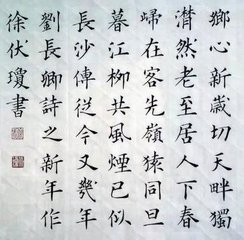 鄉心新歲切天畔獨
潸然老至居人下春
歸在客先嶺猿同旦
暮江柳共風煙已似
長沙傅從今又幾年
劉長卿詩之新年作
徐伏瓊書